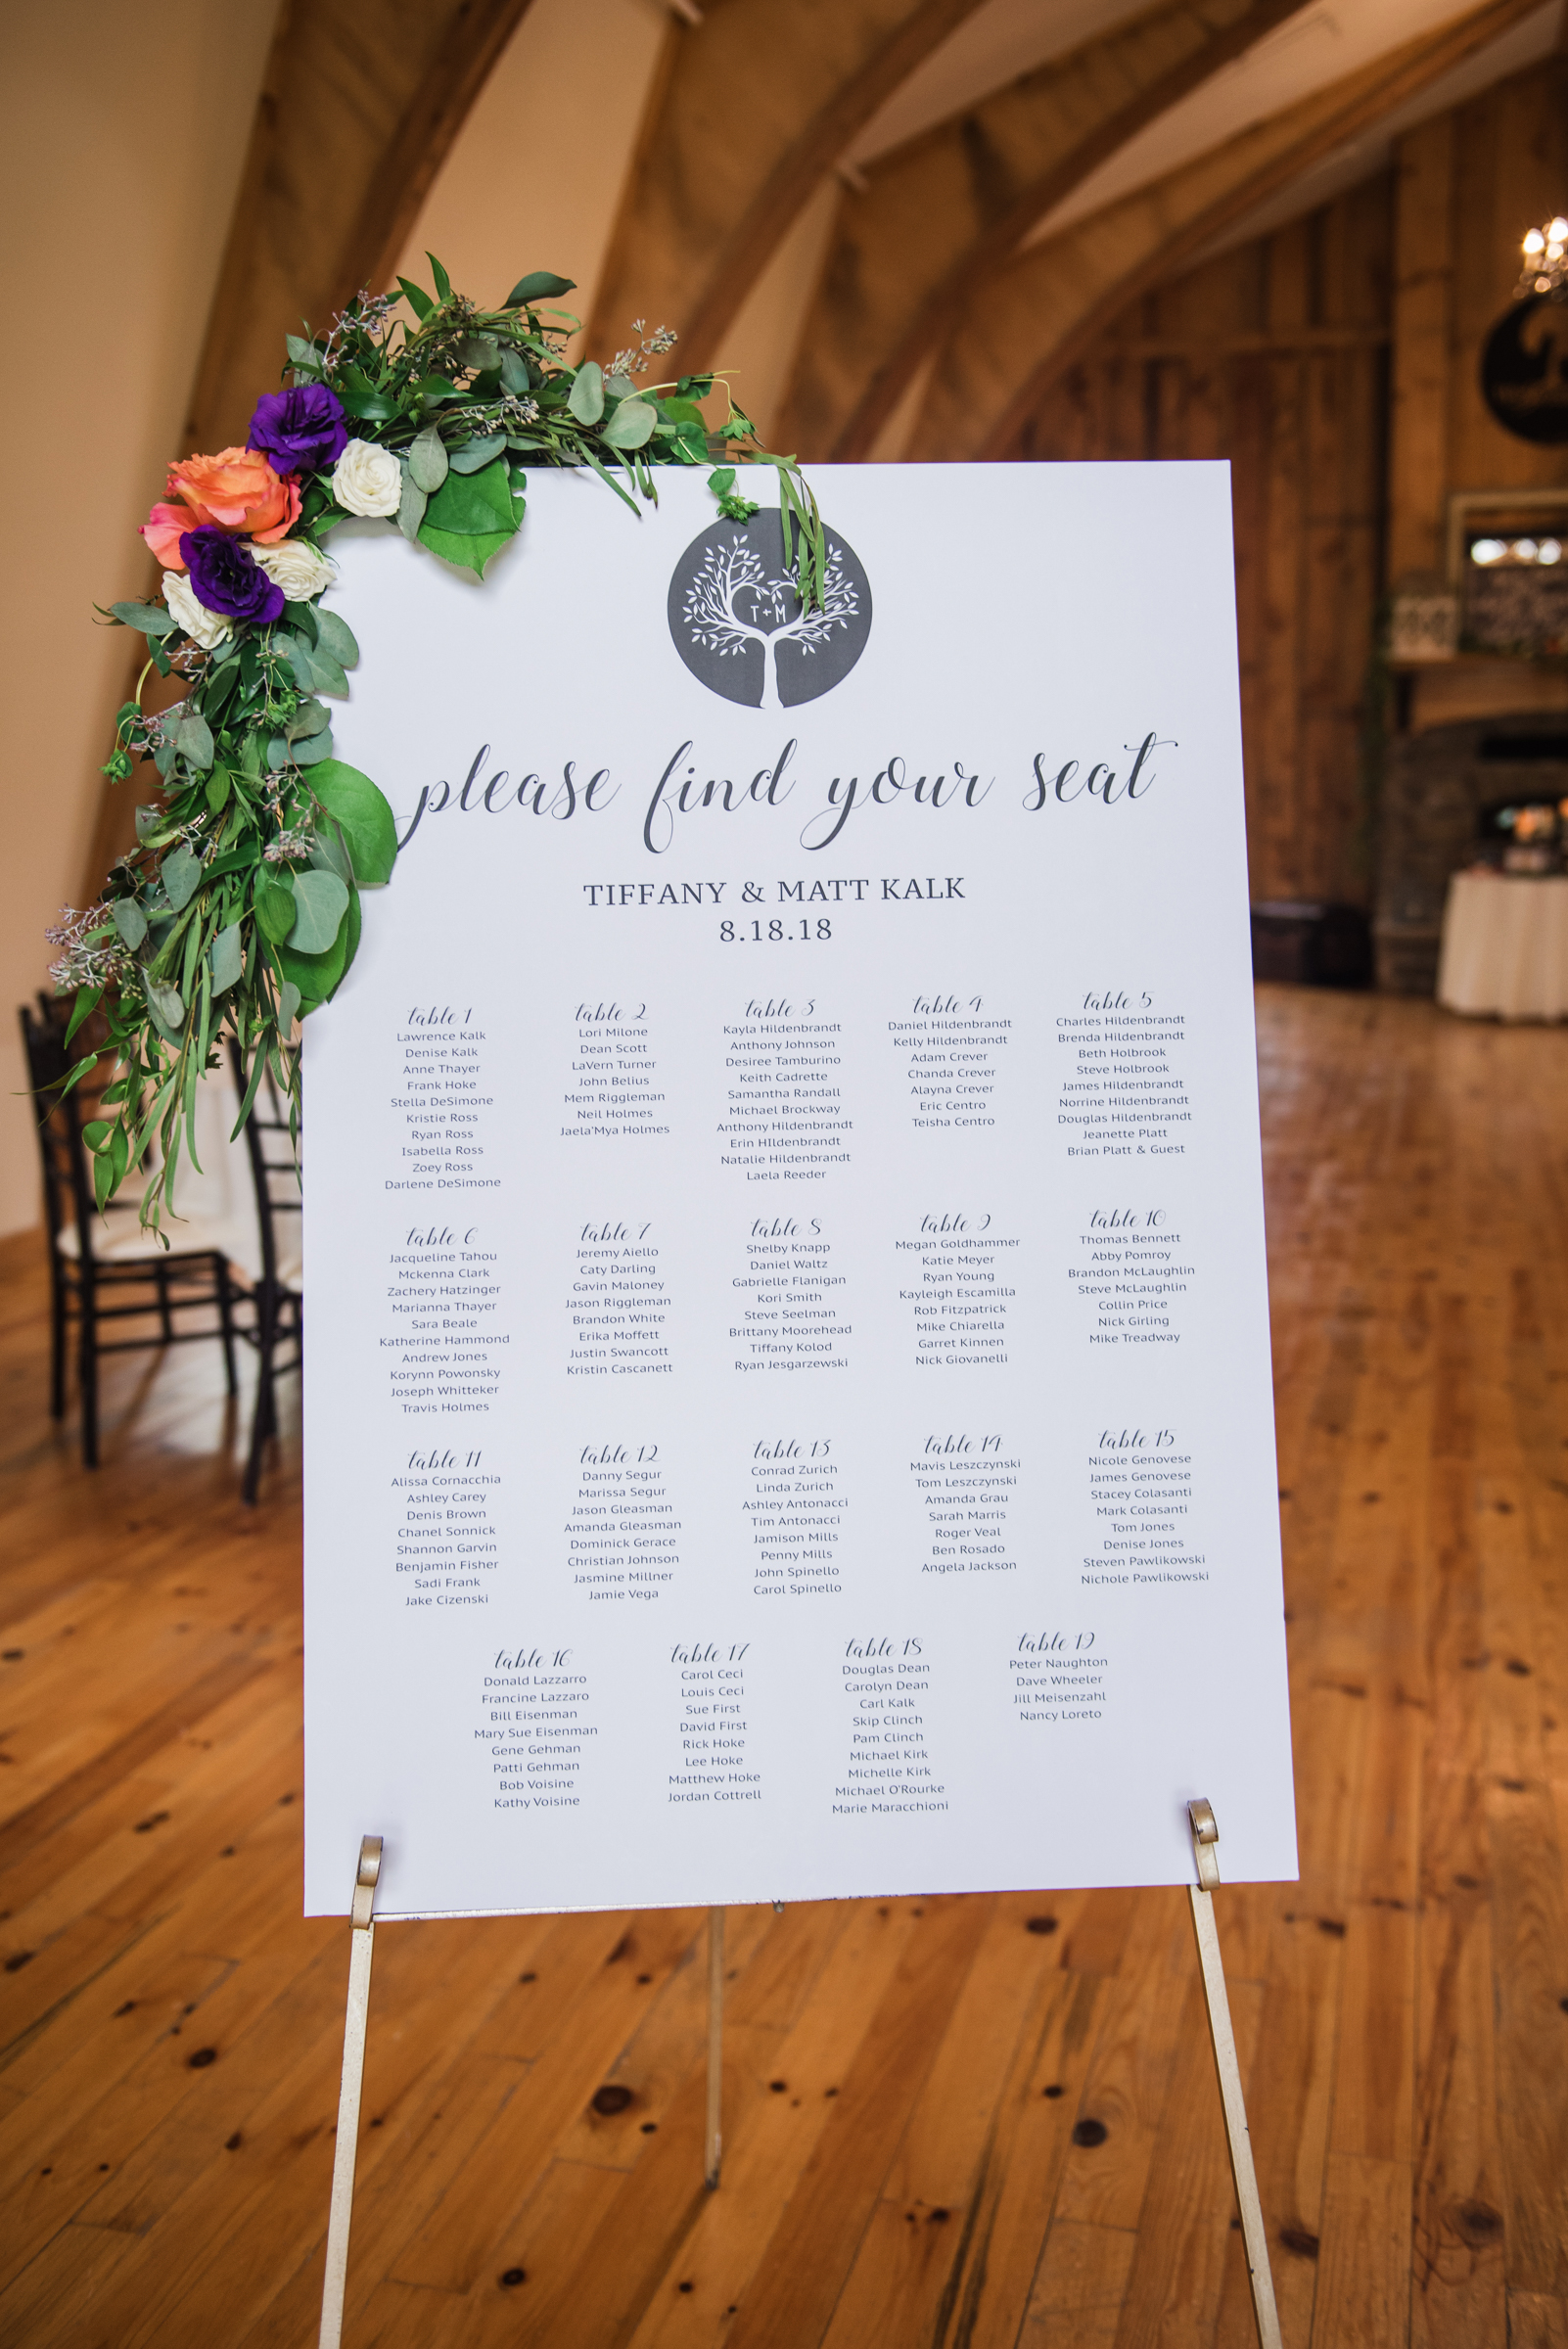 T + M
please find your seat
TIFFANY & MATT KALK
8.18.18
table 1
Lawrence Kalk
Denise Kalk
Anne Thayer
Frank Hoke
Stella DeSimone
Kristie Ross
Ryan Ross
Isabella Ross
Zoey Ross
Darlene DeSimone
table 2
Lori Milone
Dean Scott
LaVern Turner
John Belius
Mem Riggleman
Neil Holmes
Jaela'Mya Holmes
table 3
Kayla Hildenbrandt
Anthony Johnson
Desiree Tamburino
Keith Cadrette
Samantha Randall
Michael Brockway
Anthony Hildenbrandt
Erin HIldenbrandt
Natalie Hildenbrandt
Laela Reeder
table 4
Daniel Hildenbrandt
Kelly Hildenbrandt
Adam Crever
Chanda Crever
Alayna Crever
Eric Centro
Teisha Centro
table 5
Charles Hildenbrandt
Brenda Hildenbrandt
Beth Holbrook
Steve Holbrook
James Hildenbrandt
Norrine Hildenbrandt
Douglas Hildenbrandt
Jeanette Platt
Brian Platt & Guest
table 6
Jacqueline Tahou
Mckenna Clark
Zachery Hatzinger
Marianna Thayer
Sara Beale
Katherine Hammond
Andrew Jones
Korynn Powonsky
Joseph Whitteker
Travis Holmes
table 7
Jeremy Aiello
Caty Darling
Gavin Maloney
Jason Riggleman
Brandon White
Erika Moffett
Justin Swancott
Kristin Cascanett
table 8
Shelby Knapp
Daniel Waltz
Gabrielle Flanigan
Kori Smith
Steve Seelman
Brittany Moorehead
Tiffany Kolod
Ryan Jesgarzewski
table 9
Megan Goldhammer
Katie Meyer
Ryan Young
Kayleigh Escamilla
Rob Fitzpatrick
Mike Chiarella
Garret Kinnen
Nick Giovanelli
table 10
Thomas Bennett
Abby Pomroy
Brandon McLaughlin
Steve McLaughlin
Collin Price
Nick Girling
Mike Treadway
table 11
Alissa Cornacchia
Ashley Carey
Denis Brown
Chanel Sonnick
Shannon Garvin
Benjamin Fisher
Sadi Frank
Jake Cizenski
table 12
Danny Segur
Marissa Segur
Jason Gleasman
Amanda Gleasman
Dominick Gerace
Christian Johnson
Jasmine Millner
Jamie Vega
table 13
Conrad Zurich
Linda Zurich
Ashley Antonacci
Tim Antonacci
Jamison Mills
Penny Mills
John Spinello
Carol Spinello
table 14
Mavis Leszczynski
Tom Leszczynski
Amanda Grau
Sarah Marris
Roger Veal
Ben Rosado
Angela Jackson
table 15
Nicole Genovese
James Genovese
Stacey Colasanti
Mark Colasanti
Tom Jones
Denise Jones
Steven Pawlikowski
Nichole Pawlikowski
table 16
Donald Lazzarro
Francine Lazzaro
Bill Eisenman
Mary Sue Eisenman
Gene Gehman
Patti Gehman
Bob Voisine
Kathy Voisine
table 17
Carol Ceci
Louis Ceci
Sue First
David First
Rick Hoke
Lee Hoke
Matthew Hoke
Jordan Cottrell
table 18
Douglas Dean
Carolyn Dean
Carl Kalk
Skip Clinch
Pam Clinch
Michael Kirk
Michelle Kirk
Michael O'Rourke
Marie Maracchioni
table 19
Peter Naughton
Dave Wheeler
Jill Meisenzahl
Nancy Loreto